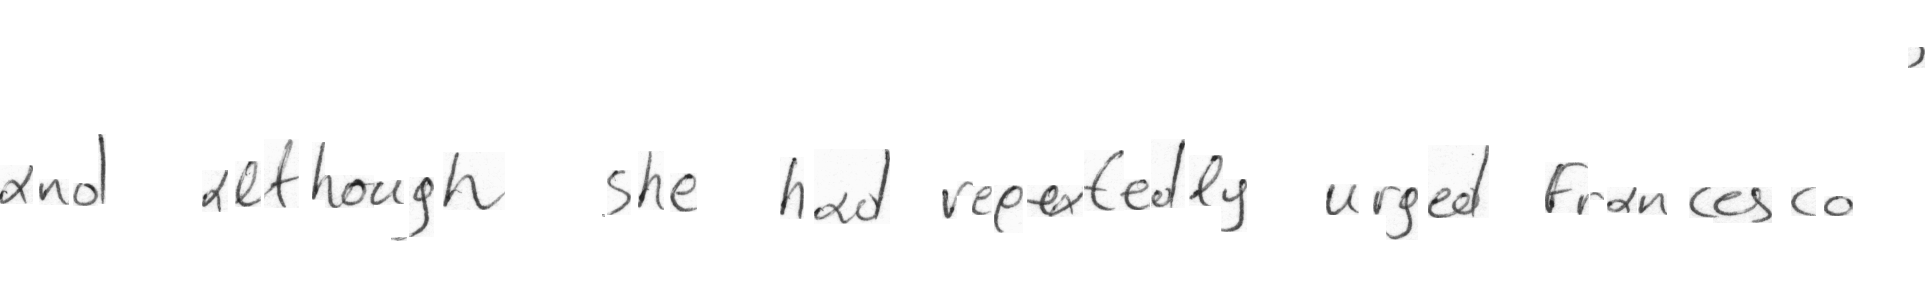 and although she had repeatedly urged Francesco,